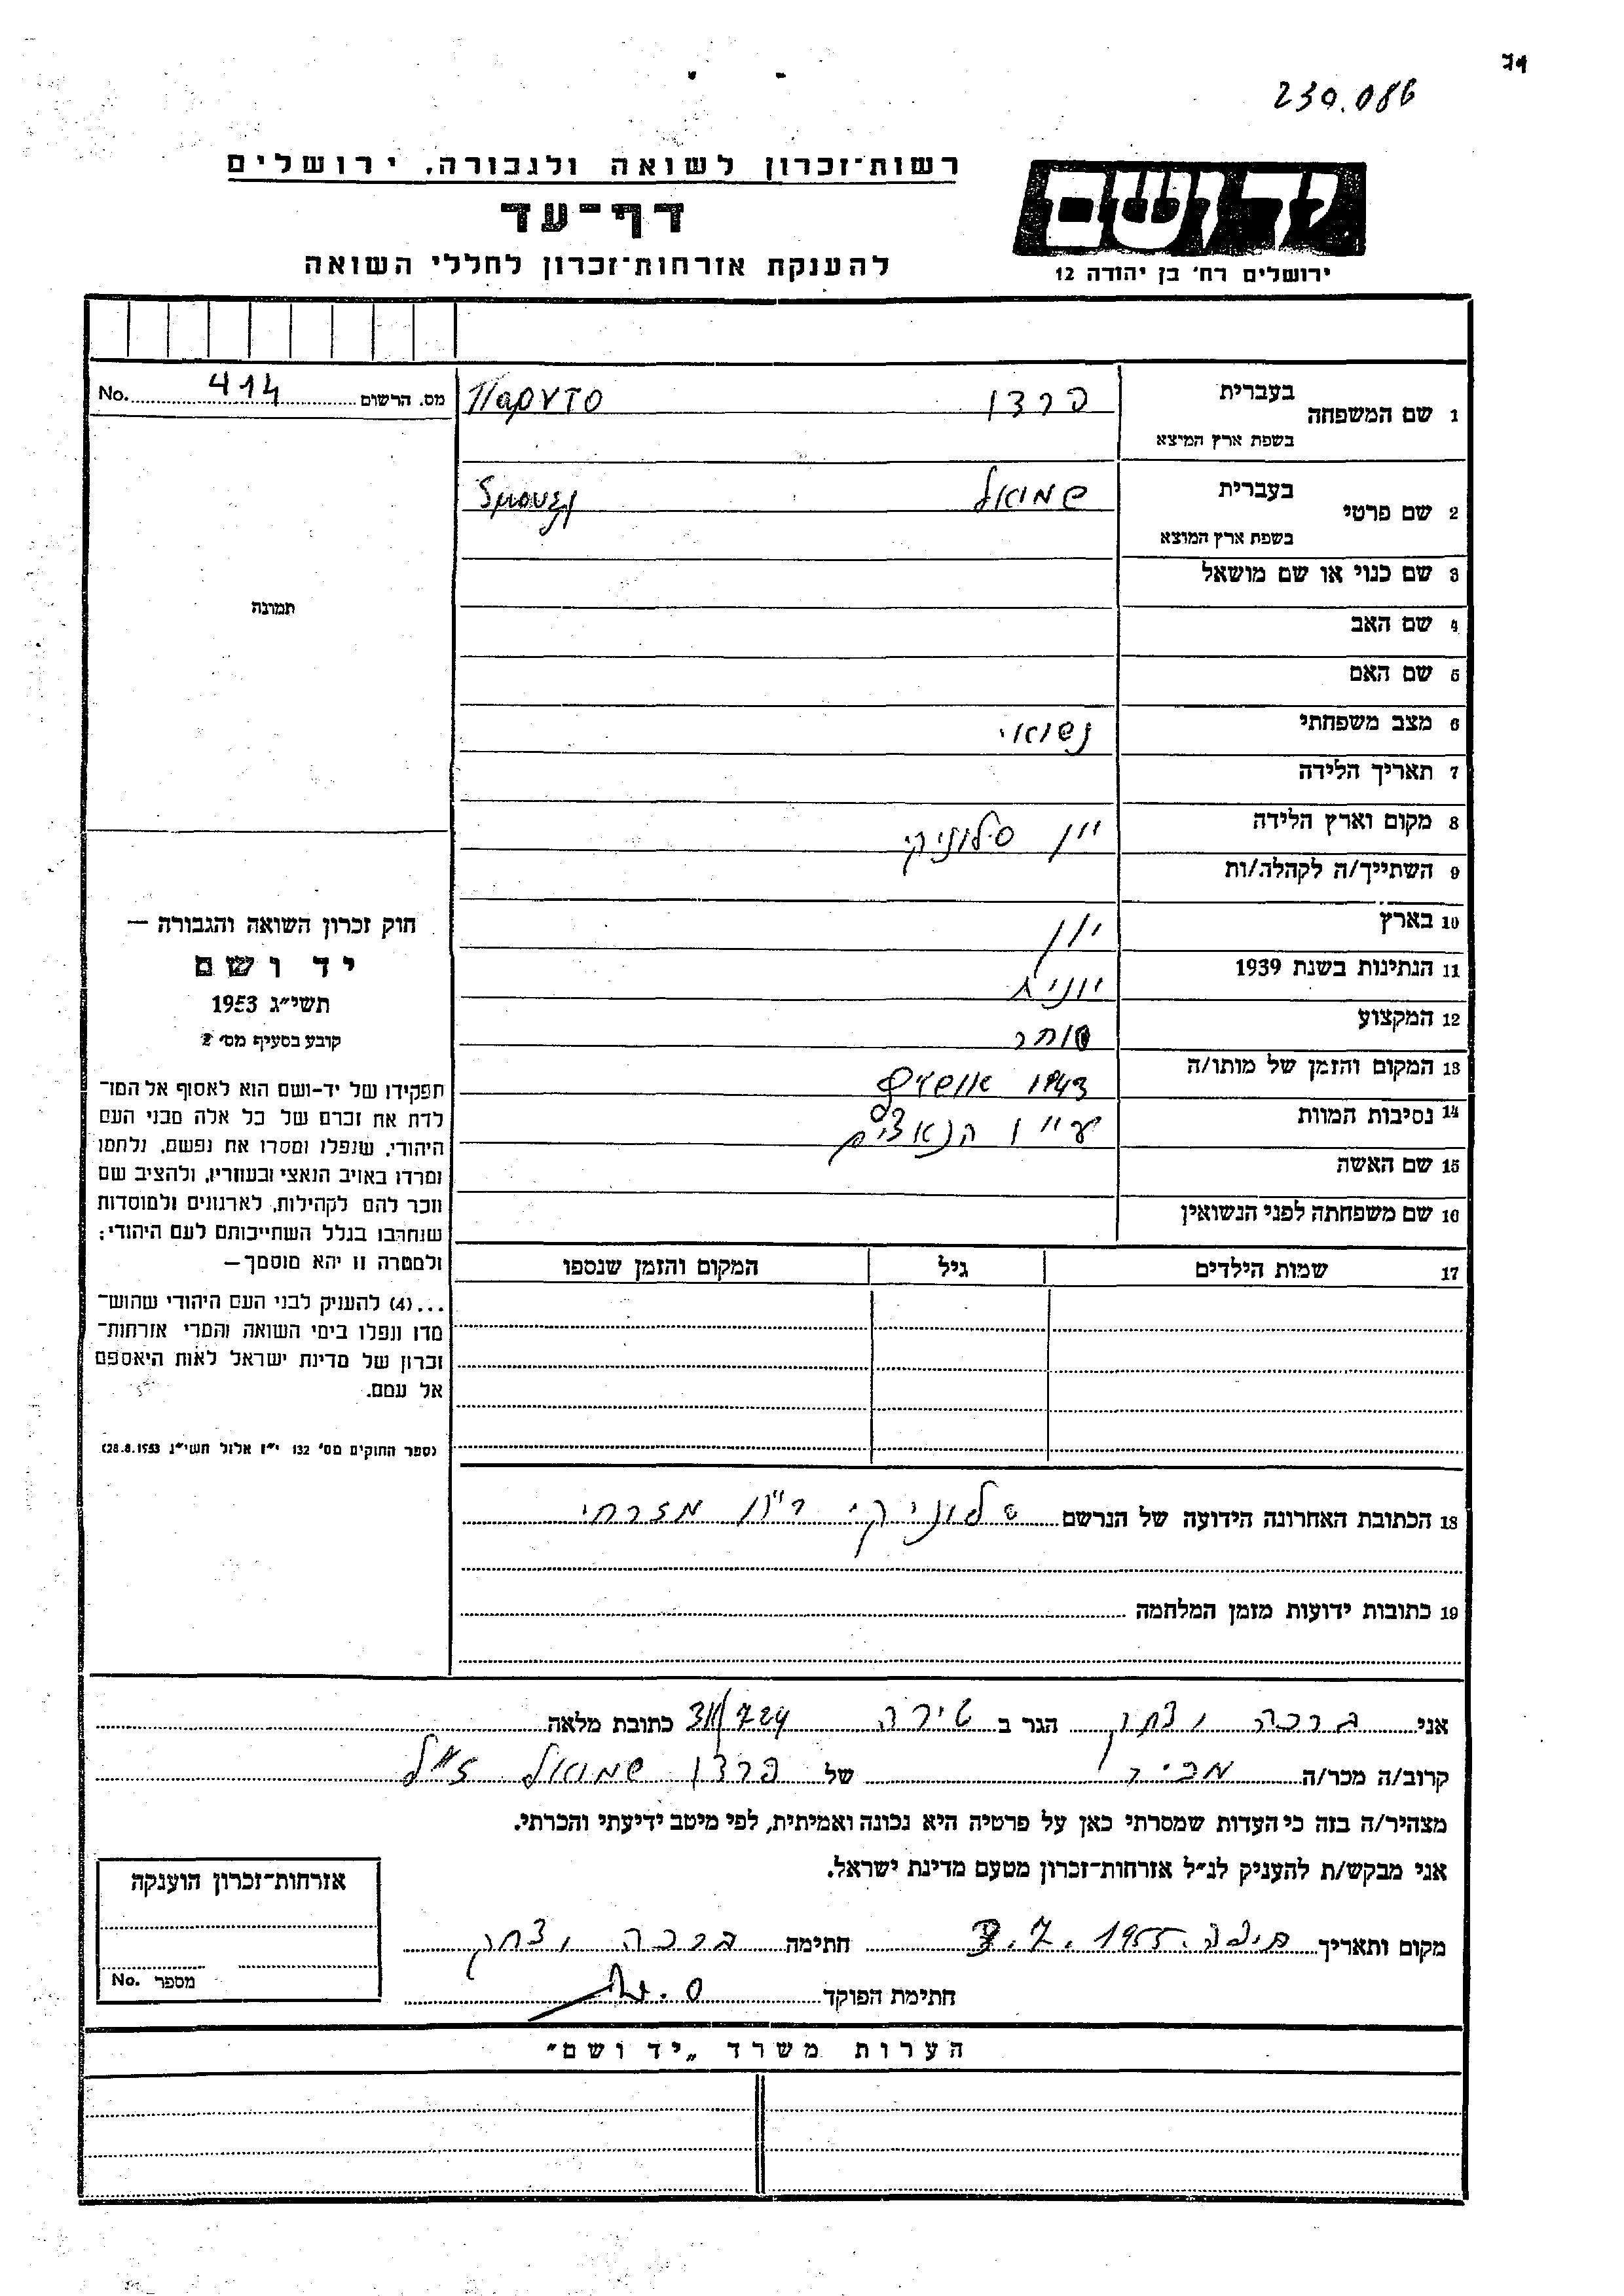 230.086
רשות־זכרון לשואה ולגבורה, ירושלים
דף־עד
להענקת אזרחות־זכרון לחללי השואה
יד ושם
ירושלים רח' בן יהודה 12
מס. הרשום 414 No.
1 שם המשפחה בעברית פרדו Παρντο
בשפת ארץ המוצא
2 שם פרטי בעברית שמואל
בשפת ארץ המוצא
3 שם כנוי או שם מושאל
4 שם האב
5 שם האם
6 מצב משפחתי נשואי
7 תאריך הלידה
8 מקום וארץ הלידה יון סלוניקי
9 השתייך/ה לקהלה/ות
10 בארץ יון
11 הנתינות בשנת 1939 יונית
12 המקצוע סוחר
13 המקום והזמן של מותו/ה 1943 אושויץ
14 נסיבות המוות ע״י הנאצים
15 שם האשה
16 שם משפחתה לפני הנשואין
17 שמות הילדים גיל המקום והזמן שנספו
תמונה
חוק זכרון השואה והגבורה —
יד ושם
תשי״ג 1953
קובע בסעיף מס' 2
תפקידו של יד-ושם הוא לאסוף אל המו־
לדת את זכרם של כל אלה מבני העם
היהודי, שנפלו ומסרו את נפשם, נלחמו
ומרדו באויב הנאצי ובעוזריו, ולהציב שם
וזכר להם לקהילות, לארגונים ולמוסדות
שנחרבו בגלל השתייכותם לעם היהודי;
ולמטרה זו יהא מוסמך—
...(4) להעניק לבני העם היהודי שהוש־
מדו ונפלו בימי השואה והמרי אזרחות־
זכרון של מדינת ישראל לאות היאספם
אל עמם.
(ספר החוקים מס' 132 י״ז אלול תשי״ג 28.8.1953)
18 הכתובת האחרונה הידועה של הנרשם סלוניקי מזרחי
19 כתובות ידועות מזמן המלחמה
אני ברכה יצחק הגר ב טירה 31/724 כתובת מלאה
קרוב/ה מכר/ה מכיר של פרדו שמואל ז״ל
מצהיר/ה בזה כי העדות שמסרתי כאן על פרטיה היא נכונה ואמיתית, לפי מיטב ידיעתי והכרתי.
אני מבקש/ת להעניק לנ״ל אזרחות־זכרון מטעם מדינת ישראל.
מקום ותאריך חיפה .7.1955 חתימה ברכה יצחק
חתימת הפוקד
אזרחות־זכרון הוענקה
מספר No.
הערות משרד „יד ושם״